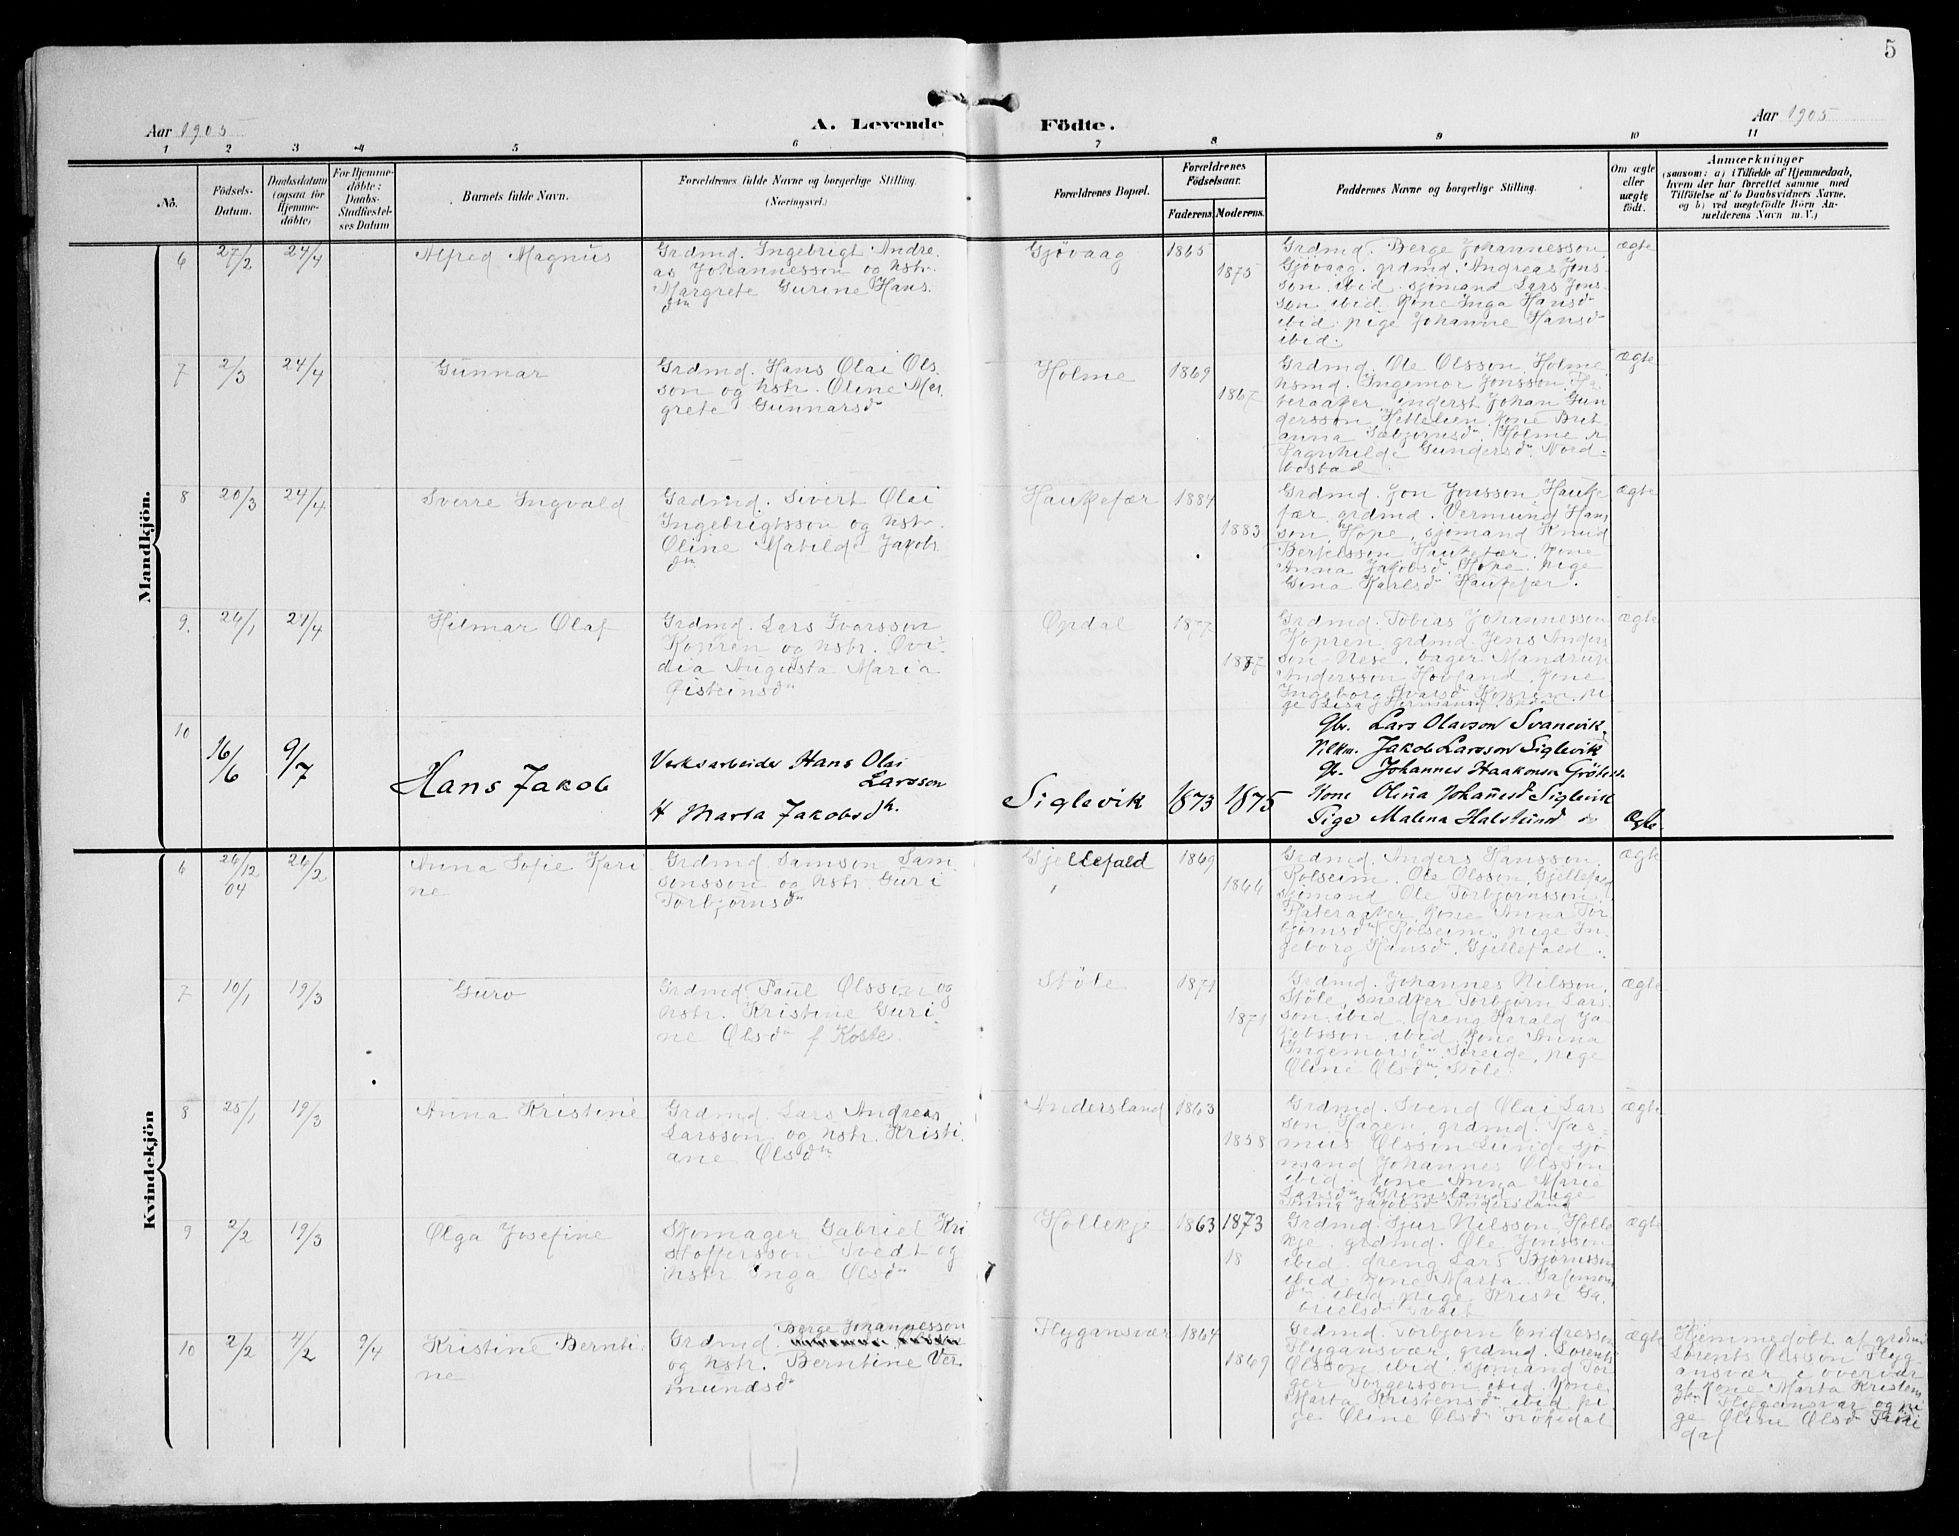 5
Aar 1905
A. Levende Födte.
Aar 1905
1 2 3 4 5 6 7 8 9 10 11
No.
Födsels-
Datum.
Daabsdatum
(ogsaa for
Hjemme-
döbte)
For Hjemme-
döbte:
Daabs-
Stadfæstel-
ses Datum
Barnets fulde Navn.
Forældrenes fulde Navne og borgerlige Stilling.
(Næringsvei.)
Forældrenes Bopæl.
Forældrenes
Födselsaar.
Faderens Moderens.
Faddernes Navne og borgerlige Stilling.
Om ægte
eller
uægte
födt.
Anmærkninger
(saasom: a) i Tilfælde af Hjemmedaab,
hvem der har forrettet samme med
Tilföielse af to Daabsvidners Navne,
og b) ved uægtefödte Börn An-
melderens Navn m. V.)
Mandkjön.
6 27/2 24/4 Alfred Magnus
Grdmd. Ingebrigt Andre-
as Johannesson og hstr.
Margrete Gurine Hans
dtr
Gjøvaag 1865
1875
Grdmd. Berge Johannesson
Gjøvaag, grdmd. Andreas Jons
son ibid. sjømand Lars Jons
son ibid. kone Inga Hansd
ibid. pige Johanne Hansd
ibid.
ægte
7 2/3 24/4 Gunnar
Grdmd. Hans Olai Ols
son og hstr. Oline Mar
grete Gunnarsd
Holme 1869
1867
Grdmd. Ole Olsson, Holme,
hsmd. Ingemor Jonsson,
Johan Gun
dersson Hettelien, kone Brit
anna Holme
Ragnhilde Gundersd. Nord-
bostad.
ægte
8 20/3 24/4 Sverre Ingvald
Grdmd. Sivert Olai
Ingebrigtsson og hstr.
Oline Matilde Jakobs
dtr
Haukefær 1884
1883
Grdmd. Jon Jonsson Hauke
fær, grdmd. Vermund Hans
son, Hope, sjømand Knud
Bertelsson Haukefær, kone
Anna Jakobsd. Hope, pige
Gina Karlsd Haukefær.
ægte
9. 26/1 24/4 Hilmar Olaf
Grdmd. Lars Ivarsson
Kopren og hstr. Ovi-
dia Augusta Maria
Øisteinsd
Opdal 1877
1887
Grdmd. Tobias Johannesson
Kopren, grdmd Jens Anders
son Nese, bager Mandrup
Andersson Hovland, kone
Ingeborg Ivarsd Kopren, pi
ge Lisa Hermansd. Opdal
ægte
10 16/6 9/7 Hans Jakob
Verksarbeider Hans Olai
Larsson
H Marta Jakobsdtr.
Siglevik 1873 1875
Gbr. Lars Olavson Svanevik
Jakob Larsson Siglevik
Gbr. Johannes Haakonsen
Kone Olina Johansd Siglevik
Pige Malena Halsteind do
Ægte.
Kvindekjön
6 26/12 04 26/2 Anna Sofie Kari
ne
Grdmd. Samson Sam
sonsson og hstr. Guri
Torbjørnsd
Gjellefald 1869
1866
Grdmd. Anders Hansson,
Rolseim. Ole Olsson, Gjellefald
sjømand Ole Torbjørnsson,
kone Anna Tor
bjørnsd, Rolseim, pige In
geborg Hansd, Gjellefald.
ægte
7 10/1 19/3 Guro
Grdmd. Paul Olsson og
hstr. Kristine Guri
ne Olsd f Koste.
Støle 1871
1871
Grdmd. Johannes Nilsson,
Støle, snedker Torbjørn Lars
son ibid, dreng Harald Ja
kobsson ibid, kone Anna
Ingemorsd. Søreide, pige
Oline Olsd. Støle
ægte
8 25/1 19/3 Anna Kristine
Grdmd. Lars Andreas
Larsson og hstr. Kristi
ane Olsd
Andersland 1863
1858
Grdmd. Svend Olai Lars
son Hagen, grdmd. Ras-
mus Olsson Lunde, sjø
mand Johannes Olsson
ibid, kone Anna Marie
Larsd. Grimsland, pige
Anna Jakobsd Andersland
ægte
9 2/2 19/3 Olga Josefine
Skomager Gabriel Kri
stoffersson Tvedt og
hstr Inga Olsd
Hollekje 1863 1873
18
Grdmd. Sjur Nilsson, Holle
kje, grdmd. Ole Jonsson
ibid, dreng Lars Bjørnsson
ibid, kone Marta Salomons
dtr ibid, pige Kristi Ga
brielsd Tvait
ægte
10 2/2 4/2 9/4 Kristine Bernti
ne
Berge Johannesson
Grdmd.
og hstr. Berntine Ver
mundsd
Flygansvær 1864
1869
Grdmd. Torbjørn Endresson
Flygansvær, grdmd. Lorents
Olsson ibid, sjømand Tor
ger Torgersson ibid, kone
Marta Kristensd ibid pi
ge Oline Olsd Frøkedal
ægte
Hjemmedøbt af grdmd
Lorents Olsson Flyg
ansvær i overvær
kone Marta Kristens
Flygansvær og pi
ge Oline Olsd
dal